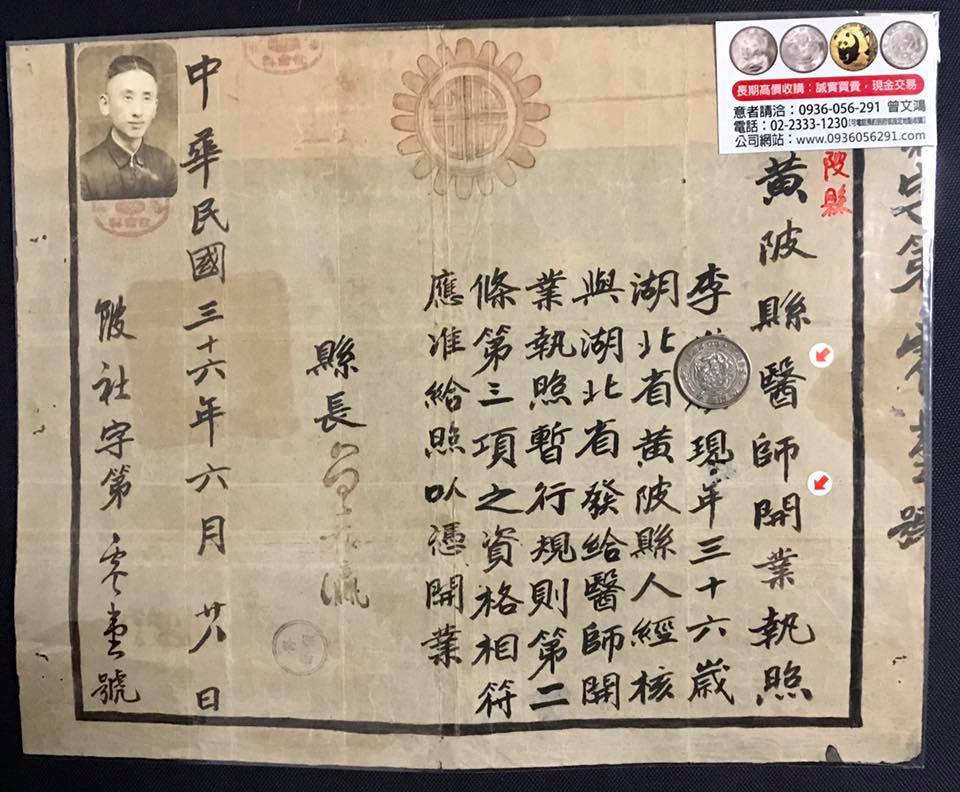 長期高價收購：誠實買賣，現金交易
意者請洽：0936-056-291 曾文鴻
電話：02-2333-1230
公司網站：www.0936056291.com
陂縣
黃陂縣醫師開業執照
李 現年三十六歲
湖北省黃陂縣人經核
與湖北省發給醫師開
業執照暫行規則第二
條第三項之資格相符
應准給照以憑開業
縣長
中華民國三十六年六月廿八日
陂社字第零壹號